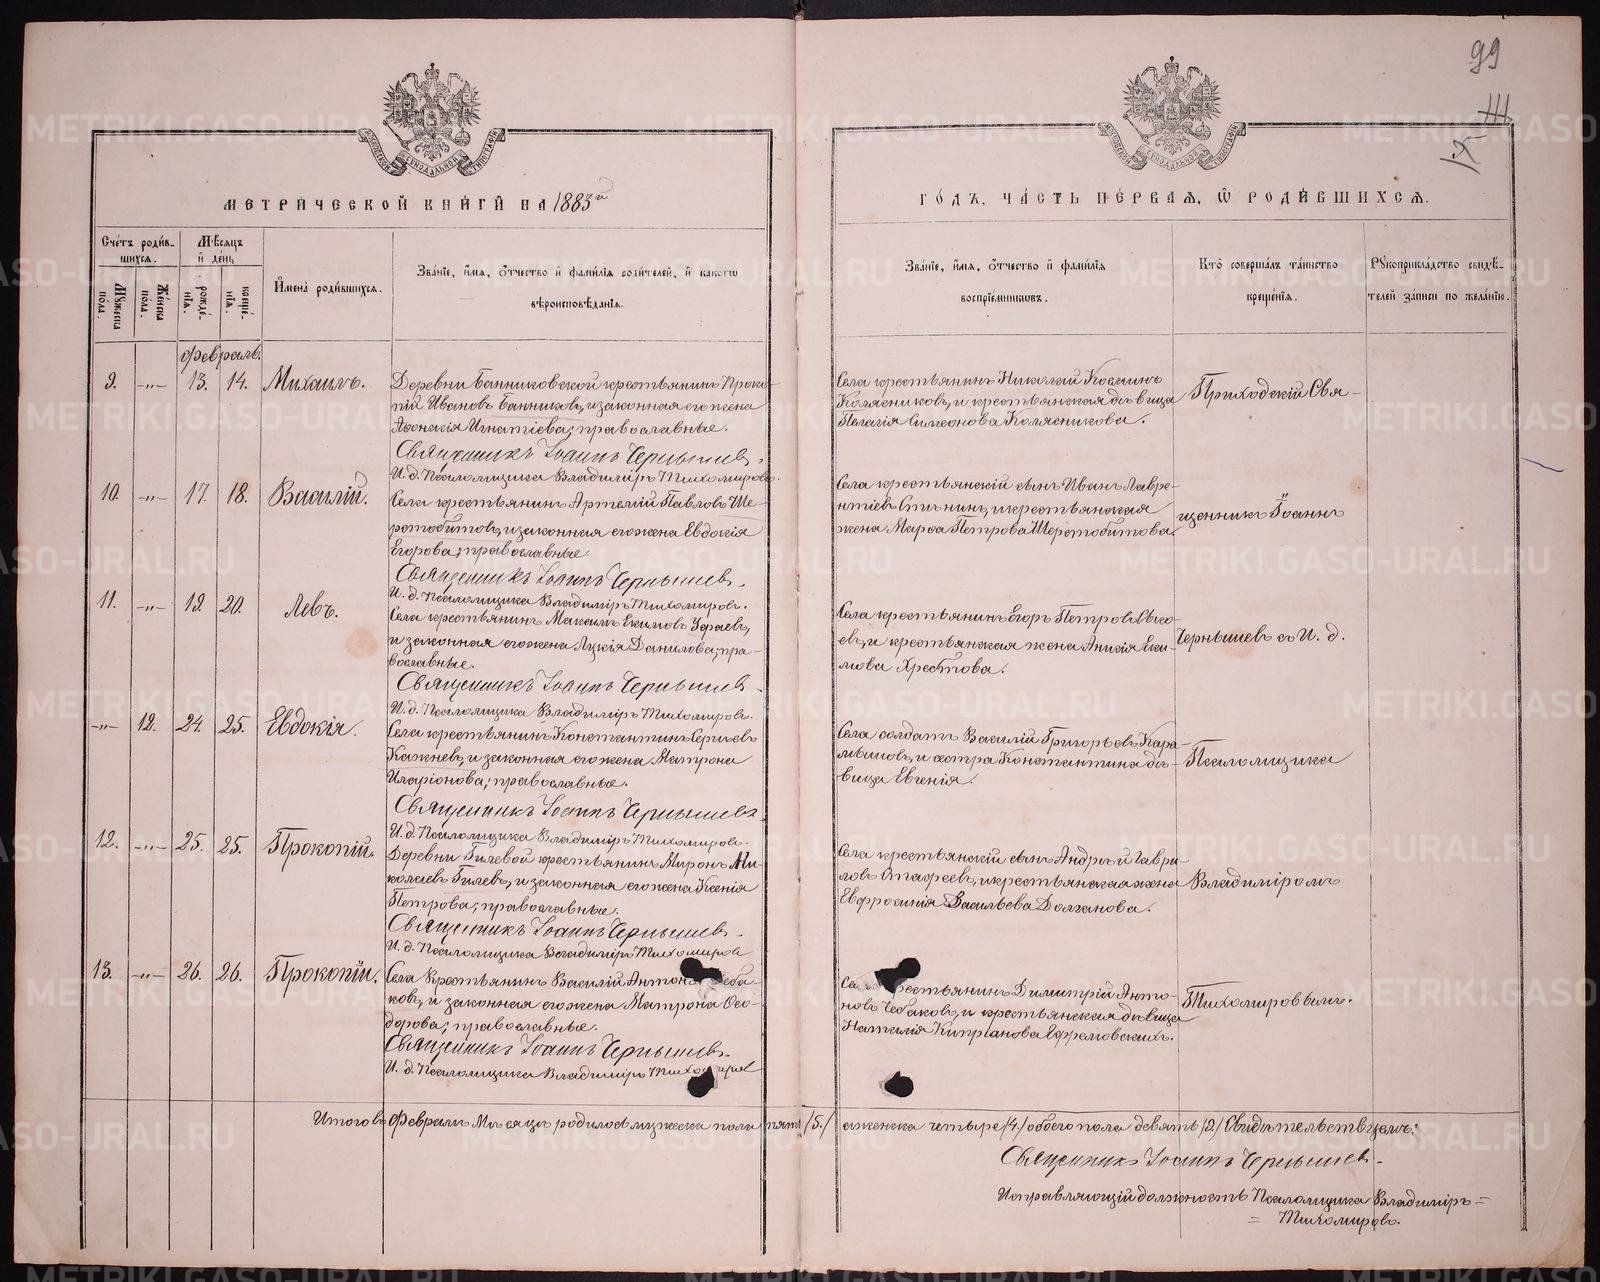 99
III
МОСКОВСКОЙ СѴНОДАЛЬНОЙ ТИПОГРАФІИ
МОСКОВСКОЙ СѴНОДАЛЬНОЙ ТИПОГРАФІИ
МЕТРИЧЕСКОЙ КНИГИ НА 1883й
ГОДЪ, ЧАСТЬ ПЕРВАЯ, Ѡ РОДИВШИХСЯ.
Счетъ родив-
шихся.
Мѣсяцъ
и день
Мужеска
пола.
Женска
пола.
рожде-
нія.
креще-
нія.
Имена родившихся.
Званіе, имя, отчество и фамилія родителей, и какого
вѣроисповѣданія.
Званіе, имя, отчество и фамилія
воспріемниковъ.
Кто совершалъ таинство
крещенія.
Рукоприкладство свидѣ-
телей записи по желанію.
Февраль.
9. -„- 13. 14. Михаилъ.
Деревни Банниковской крестьянинъ Проко-
пій Ивановъ Банниковъ, и законная его жена
Игнатіева; православные.
Священникъ Іоаннъ Чернышевъ.
И. д. Псаломщика Владиміръ Тихомировъ.
Села крестьянинъ Николай Косминъ
Колясниковъ, и крестьянская дѣвица
Пелагія Симеонова Колясникова.
Приходскій Свя-
10. -„- 17. 18. Василій.
Села крестьянинъ Артемій Павловъ Ше-
ротобитовъ, и законная его жена Евдокія
Егорова; православные.
Священникъ Іоаннъ Чернышевъ.
И. д. Псаломщика Владиміръ Тихомировъ.
Села крестьянскій сынъ Иванъ Лавре-
нтіевъ и крестьянская
жена Марѳа Петрова Шеротобитова.
щенникъ Іоаннъ
11. -„- 19. 20. Левъ.
Села крестьянинъ Максимъ Екимовъ
и законная его жена Лукія Данилова; пра-
вославные.
Священникъ Іоаннъ Чернышевъ.
И. д. Псаломщика Владиміръ Тихомировъ.
Села крестьянинъ Егоръ Петровъ
евъ, и крестьянская жена Анисія Еки-
мова Хрестова.
Чернышевъ съ И. д.
-„- 12. 24. 25. Евдокія.
Села крестьянинъ Константинъ Сергѣевъ
и законная его жена Матрона
Иларіонова; православные.
Священникъ Іоаннъ Чернышевъ.
И. д. Псаломщика Владиміръ Тихомировъ.
Села солдатъ Василій Григорьевъ Кара-
мышовъ, и сестра Константина дѣ-
вица Евгенія.
Псаломщика
12. -„- 25. 25. Прокопій.
Деревни Гилевой крестьянинъ Миронъ Ни-
колаевъ Гилевъ, и законная его жена Ксенія
Петрова; православные.
Священникъ Іоаннъ Чернышевъ.
И. д. Псаломщика Владиміръ Тихомировъ
Села крестьянскій сынъ Андрей Гаври-
ловъ и крестьянская жена
Евфросинія Васильева Долганова.
Владиміромъ
13. -„- 26. 26. Прокопій.
Села крестьянинъ Василій Антоно Чеба-
ковъ, и законная его жена Матрона Ѳео-
дорова; православные.
Священникъ Іоаннъ Чернышевъ.
И. д. Псаломщика Владиміръ Тихомировъ
Села крестьянинъ Димитрій Анто-
новъ Чебаковъ, и крестьянская дѣвица
Наталія Кипріанова Ефремовскихъ.
Тихомировымъ.
Итого въ Февралѣ Мѣсяцѣ родилось мужска пола пять /5./ а женска четыре /4/ обоего пола девять /9./ Свидѣтельствуемъ:
Священникъ Іоаннъ Чернышевъ.
Исправляющій должность Псаломщика Владиміръ =
= Тихомировъ.
METRIKI.GASO-URAL.RU